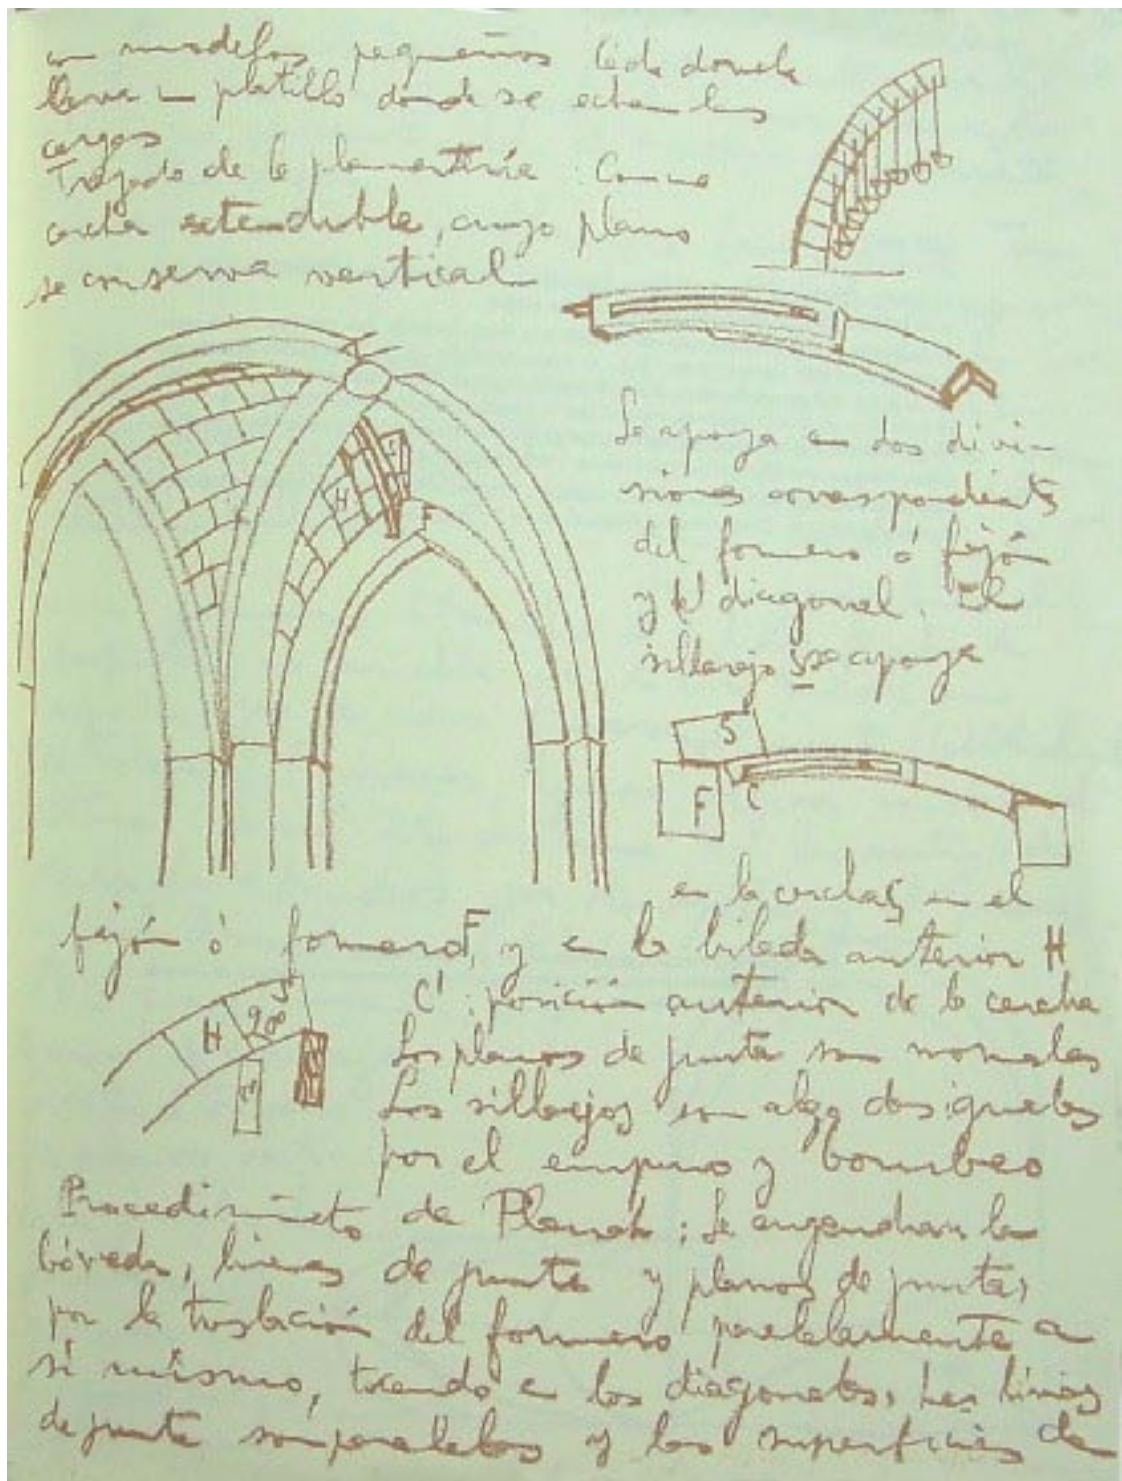 con modelos pequeños Cada dovela
lleva un platillo donde se echan las
cargas
Trazado de la plementería : Con una
cercha extendible, cuyo plano
se conserva vertical
Se apoya en dos divi-
siones correspondientes
del formero ó fajón
y del diagonal. El
sillarejo S se apoya
H
F
S
F
C
en la cercha C, en el
fajón ó formero F, y en la hilada anterior H
H
C' : posición anterior de la cercha
Los planos de junta son normales
Los sillarejos son algo desiguales
por el empuje y bombeo
Procedimiento de Planat : Se engendran la
bóveda, líneas de junta y planos de junta,
por la traslación del formero paralelamente a
sí mismo, tocando a los diagonales, Las líneas
de junta son paralelas y las superficies de